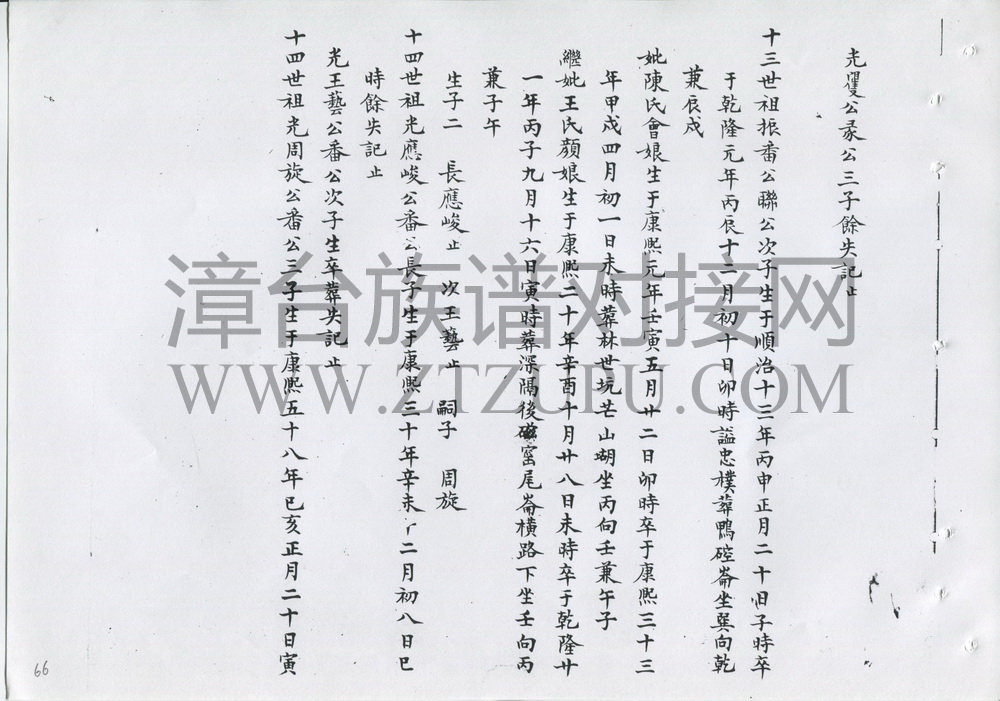 光䕫公彖公三子餘失記止
十三世祖振番公聯公次子生于順治十三年丙申正月二十日子時卒
于乾隆元年丙辰十二月初十日卯時謚忠樸葬鴨硿崙坐巽向乾
兼辰戍
妣陳氏會娘生于康熙元年壬寅五月廿二日卯時卒于康熙三十三
年甲戍四月初一日未時葬林世坑芒山湖坐丙向壬兼午子
繼妣王氏顏娘生于康熙二十年辛酉十月廿八日未時卒于乾隆廿
一年丙子九月十六日寅時葬深隔後窑尾崙橫路下坐壬向丙
兼子午
生子二 長應峻止 次王藝止 嗣子 周旋
十四世祖光應峻公番公長子生于康熙三十年辛未二月初八日巳
時餘失記止
光王藝公番公次子生卒葬失記止
十四世祖光周旋公番公三子生于康熙五十八年巳亥正月二十日寅
66
漳台族谱对接网
WWW.ZTZUPU.COM